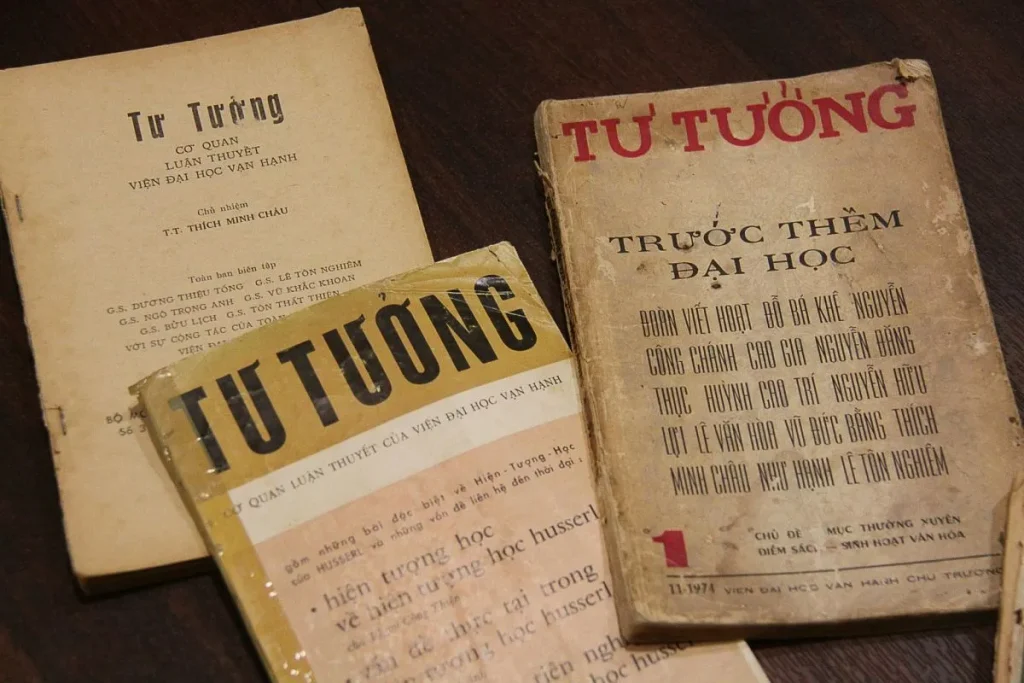 Tư Tưởng
CƠ QUAN
LUẬN THUYẾT
VIỆN ĐẠI HỌC VẠN HẠNH
Chủ nhiệm
T.T. THÍCH MINH CHÂU
Toàn ban biên tập
G.S. DƯƠNG THIỆU TỐNG G.S. LÊ TÔN NGHIÊM
G.S. NGÔ TRỌNG ANH G.S. VŨ KHẮC KHOAN
G.S. BỬU LỊCH G.S. TÔN THẤT THIỆN
VỚI SỰ CỘNG TÁC CỦA TOÀN
VIỆN ĐẠI
BỘ
SỐ 3
TƯ TƯỞNG
CƠ QUAN LUẬN THUYẾT CỦA VIỆN ĐẠI HỌC VẠN HẠNH
gồm những bài đặc biệt về Hiện-Tượng-Học
của HUSSERL và những vấn đề liên hệ đến thời đại :
• hiện tượng học
về hiện tượng học husserl
vấn đề thực tại trong
hiện tượng học husserl
tiên
học husserl
TƯ TƯỞNG
TRƯỚC THỀM
ĐẠI HỌC
ĐOÀN VIẾT HOẠT ĐỖ BÁ KHÊ NGUYỄN
CÔNG CHÁNH CAO GIA NGUYỄN ĐĂNG
THỤC HUỲNH CAO TRÍ NGUYỄN HỮU
LỢI LÊ VĂN HOA VŨ ĐỨC BẰNG THÍCH
MINH CHÂU NHƯ HẠNH LÊ TÔN NGHIÊM
1
CHỦ ĐỀ – MỤC THƯỜNG XUYÊN
ĐIỂM SÁCH – SINH HOẠT VĂN HÓA
11-1974 VIỆN ĐẠI HỌC VẠN HẠNH CHỦ TRƯƠNG